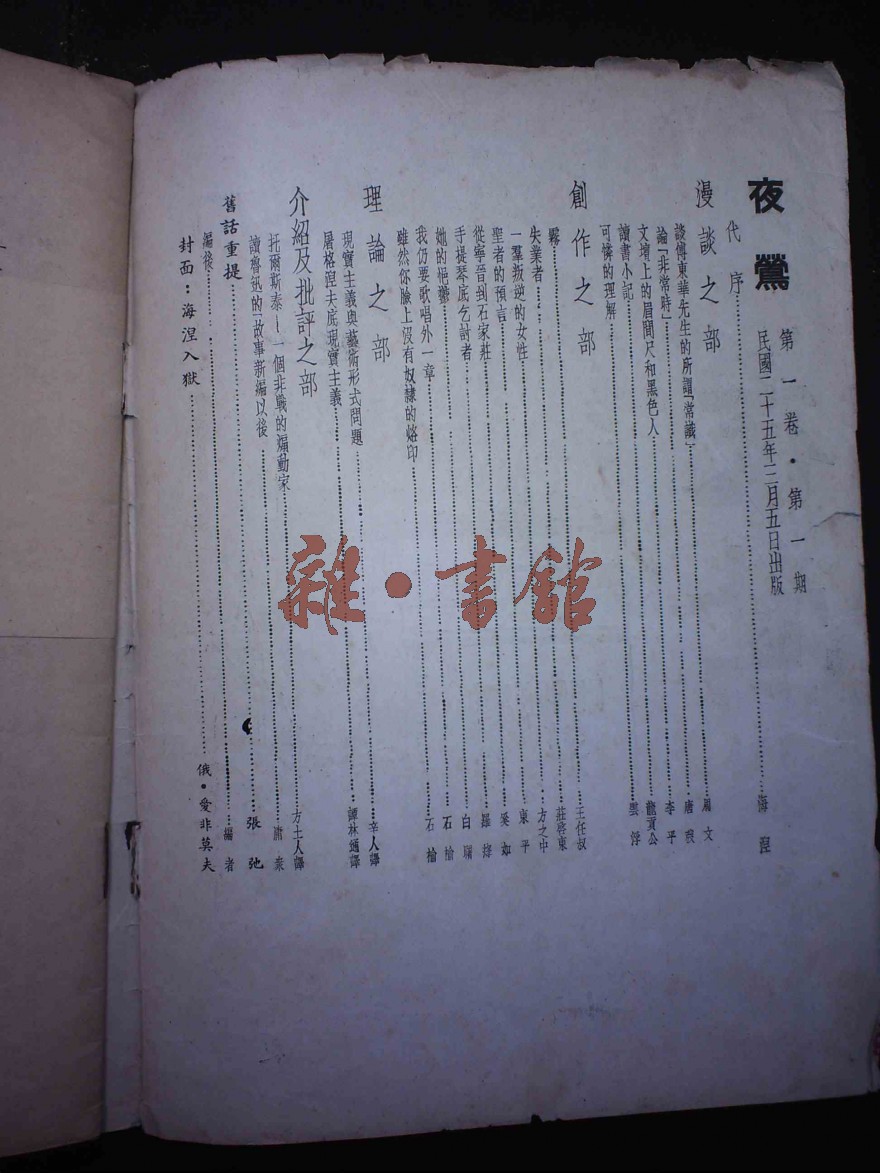 夜鶯
第一卷・第一期
民國二十五年三月五日出版
代序……海涅
漫談之部
談傅東華先生的所謂「常識」……周文
論「非常時」……唐弢
文壇上的眉間尺和黑色人……李平
讀書小記……龍貢公
可憐的理解……雲俘
創作之部
霧……王任叔
失業者……莊啓東
一羣叛逆的女性……方之中
聖者的預言……東平
從寧晉到石家莊……奚如
手提琴底乞討者……羅烽
她的悒鬱……白曙
我仍要歌唱外一章……石榆
雖然你臉上沒有奴隸的烙印……石榆
理論之部
現實主義與藝術形式問題……辛人譯
屠格涅夫底現實主義……譚林通譯
介紹及批評之部
托爾斯泰—一個非戰的煽動家……方土人譯
讀魯迅的「故事新編以後……
舊話重提……張弛
編後……編者
封面:海涅入獄……俄・愛非莫夫
雜・書館